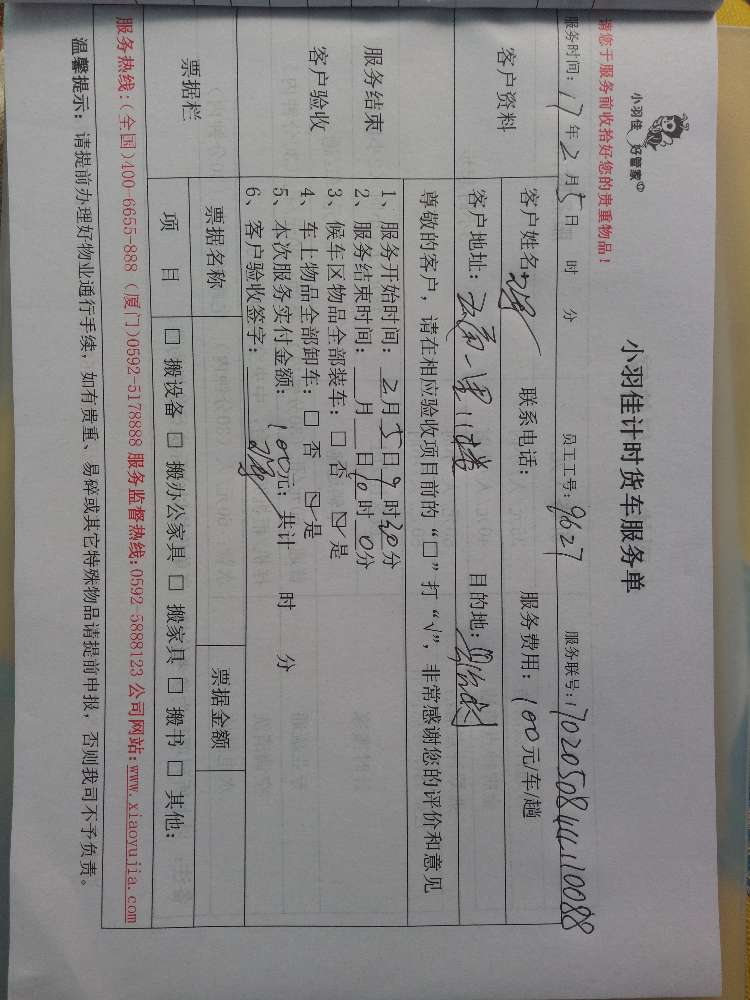 小羽佳 好管家
小羽佳计时货车服务单
请您于服务前收拾好您的贵重物品!
服务时间: 17年2月5日 时 分 员工工号: 9627 服务联号: 17020508444110088
客户资料
客户姓名: 联系电话: 服务费用: 100元/车/趟
客户地址: 目的地:
尊敬的客户,请在相应验收项目前的“□”打“√”,非常感谢您的评价和意见
服务结束
客户验收
1、服务开始时间: 2月5日9时20分
2、服务结束时间: 月 日10时0分
3、候车区物品全部装车: □ 否 ☑ 是
4、车上物品全部卸车: □ 否 ☑ 是
5、本次服务实付金额: 100元; 共计 时 分
6、客户验收签字:
票据栏
票据名称 票据金额
项 目 □ 搬设备 □ 搬办公家具 □ 搬家具 □ 搬书 □ 其他:
服务热线:(全国)400-6655-888 (厦门)0592-5178888 服务监督热线:0592-5888123 公司网站:www.xiaoyujia.com
温馨提示: 请提前办理好物业通行手续,如有贵重、易碎或其它特殊物品请提前申报,否则我司不予负责。